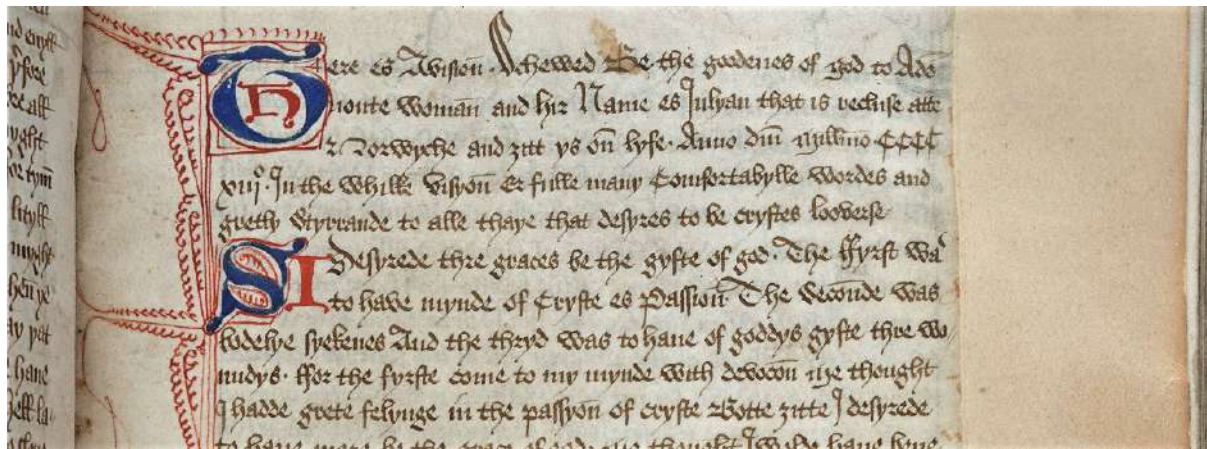 There es Avision Schewed Be the goodenes of god to Ade
uoute Woman and hir Name es Julyan that is recluse atte
Norwyche and ȝitt ys oñ lyfe. Anno dm̄ millm̄o CCCC
xiijº. In the Whilke Visyoñ Er fulle many Comfortabylle wordes and
gretly Styrrande to alle thaye that desyres to be crystes looverse
I Desyrede thre graces be the gyfte of god. The ffyrst was
to have mynde of Cryste es Passioñ. The Secoñde was
bodelye syekenes And the thryd was to haue of goddys gyfte thre wo
undys. ffor the fyrste come to my mynde with devocoñ me thought
I hadde grete felynge in the passyoñ of cryste Botte ȝitte I desyrede
to haue mare be the grace of god. me thought I wolde haue bene